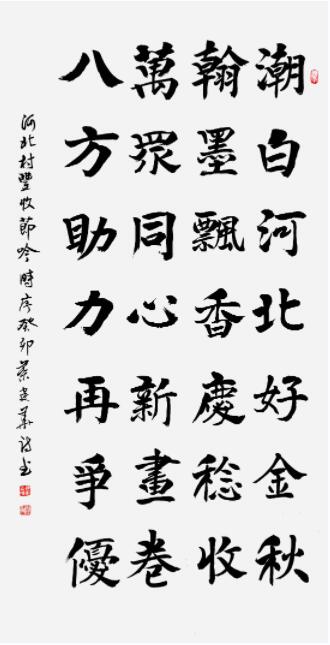 潮白河北好金秋
翰墨飄香慶稔收
萬眾同心新畫卷
八方助力再爭優
河北村豐收節吟 時序癸卯 葉建華詩書